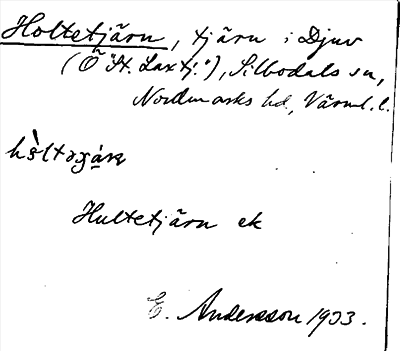 Holtetjärn, tjärn i Djuv
(Ö "St. Laxtj."), Silbodals sn,
Nordmarks hd, Värml. l.
Hultetjärn ek
E. Andersson 1933.